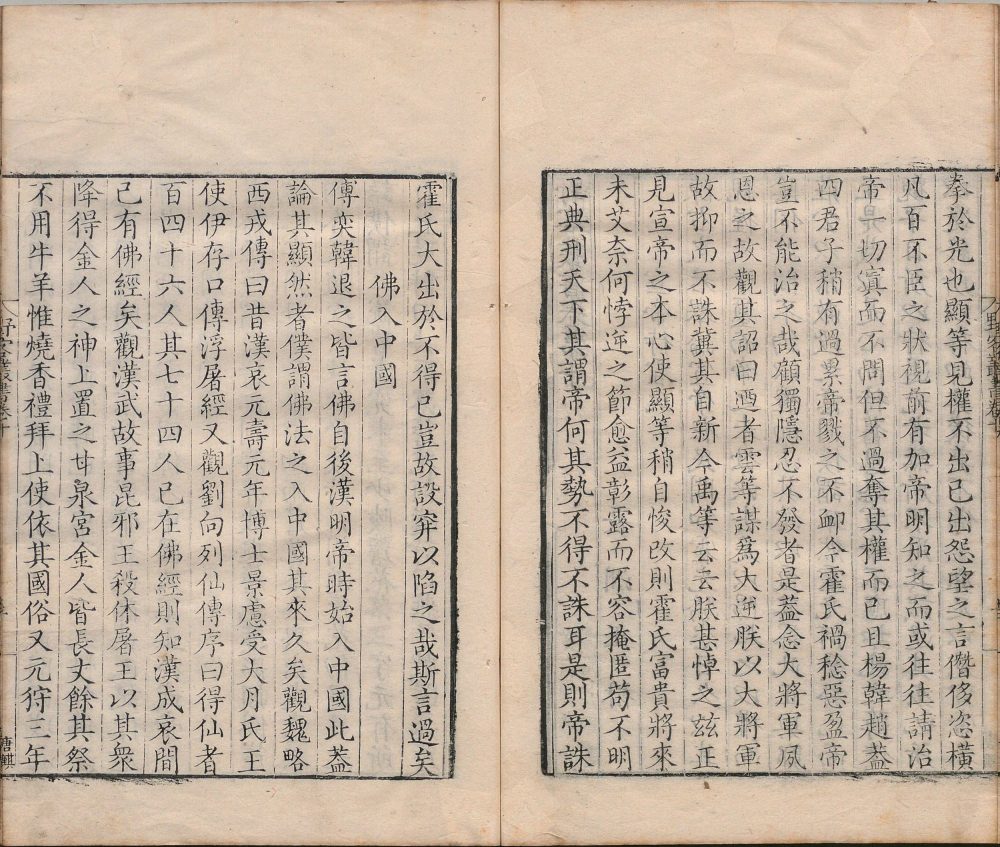 拳於光也顯等見權不出已出怨望之言僭侈恣横
凡百不臣之狀視前有加帝明知之而或往往請治
帝一切寘而不問但不過奪其權而已且楊韓趙葢
四君子稍有過累帝戮之不卹今霍氏禍稔惡盈帝
豈不能治之哉顧獨隱忍不發者是葢念大將軍夙
恩之故觀其詔曰廼者雲等謀爲大逆朕以大將軍
故抑而不誅兾其自新今禹等云云朕甚悼之兹正
見宣帝之本心使顯等稍自悛改則霍氏富貴將來
未艾奈何悖逆之節愈益彰露而不容掩匿苟不明
正典刑天下其謂帝何其勢不得不誅耳是則帝誅
霍氏大出於不得已豈故設穽以陷之哉斯言過矣
佛入中國
傅奕韓退之皆言佛自後漢明帝時始入中國此葢
論其顯然者僕謂佛法之入中國其來久矣觀魏略
西戎傳曰昔漢哀元壽元年博士景慮受大月氏王
使伊存口傳浮屠經又觀劉向列仙傳序曰得仙者
百四十六人其七十四人已在佛經則知漢成哀間
已有佛經矣觀漢武故事昆邪王殺休屠王以其衆
降得金人之神上置之甘泉宫金人皆長丈餘其祭
不用牛羊惟燒香禮拜上使依其國俗又元狩三年